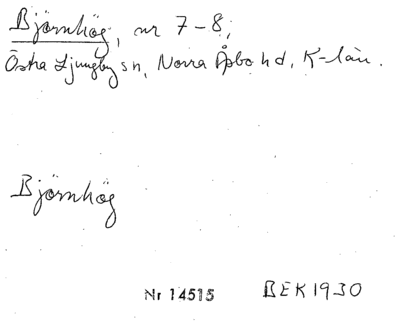 Björnhög, nr 7-8,
Östra Ljungby sn, Norra Åsbo hd, K-län.
Björnhög
Nr 14515 BEK 1930